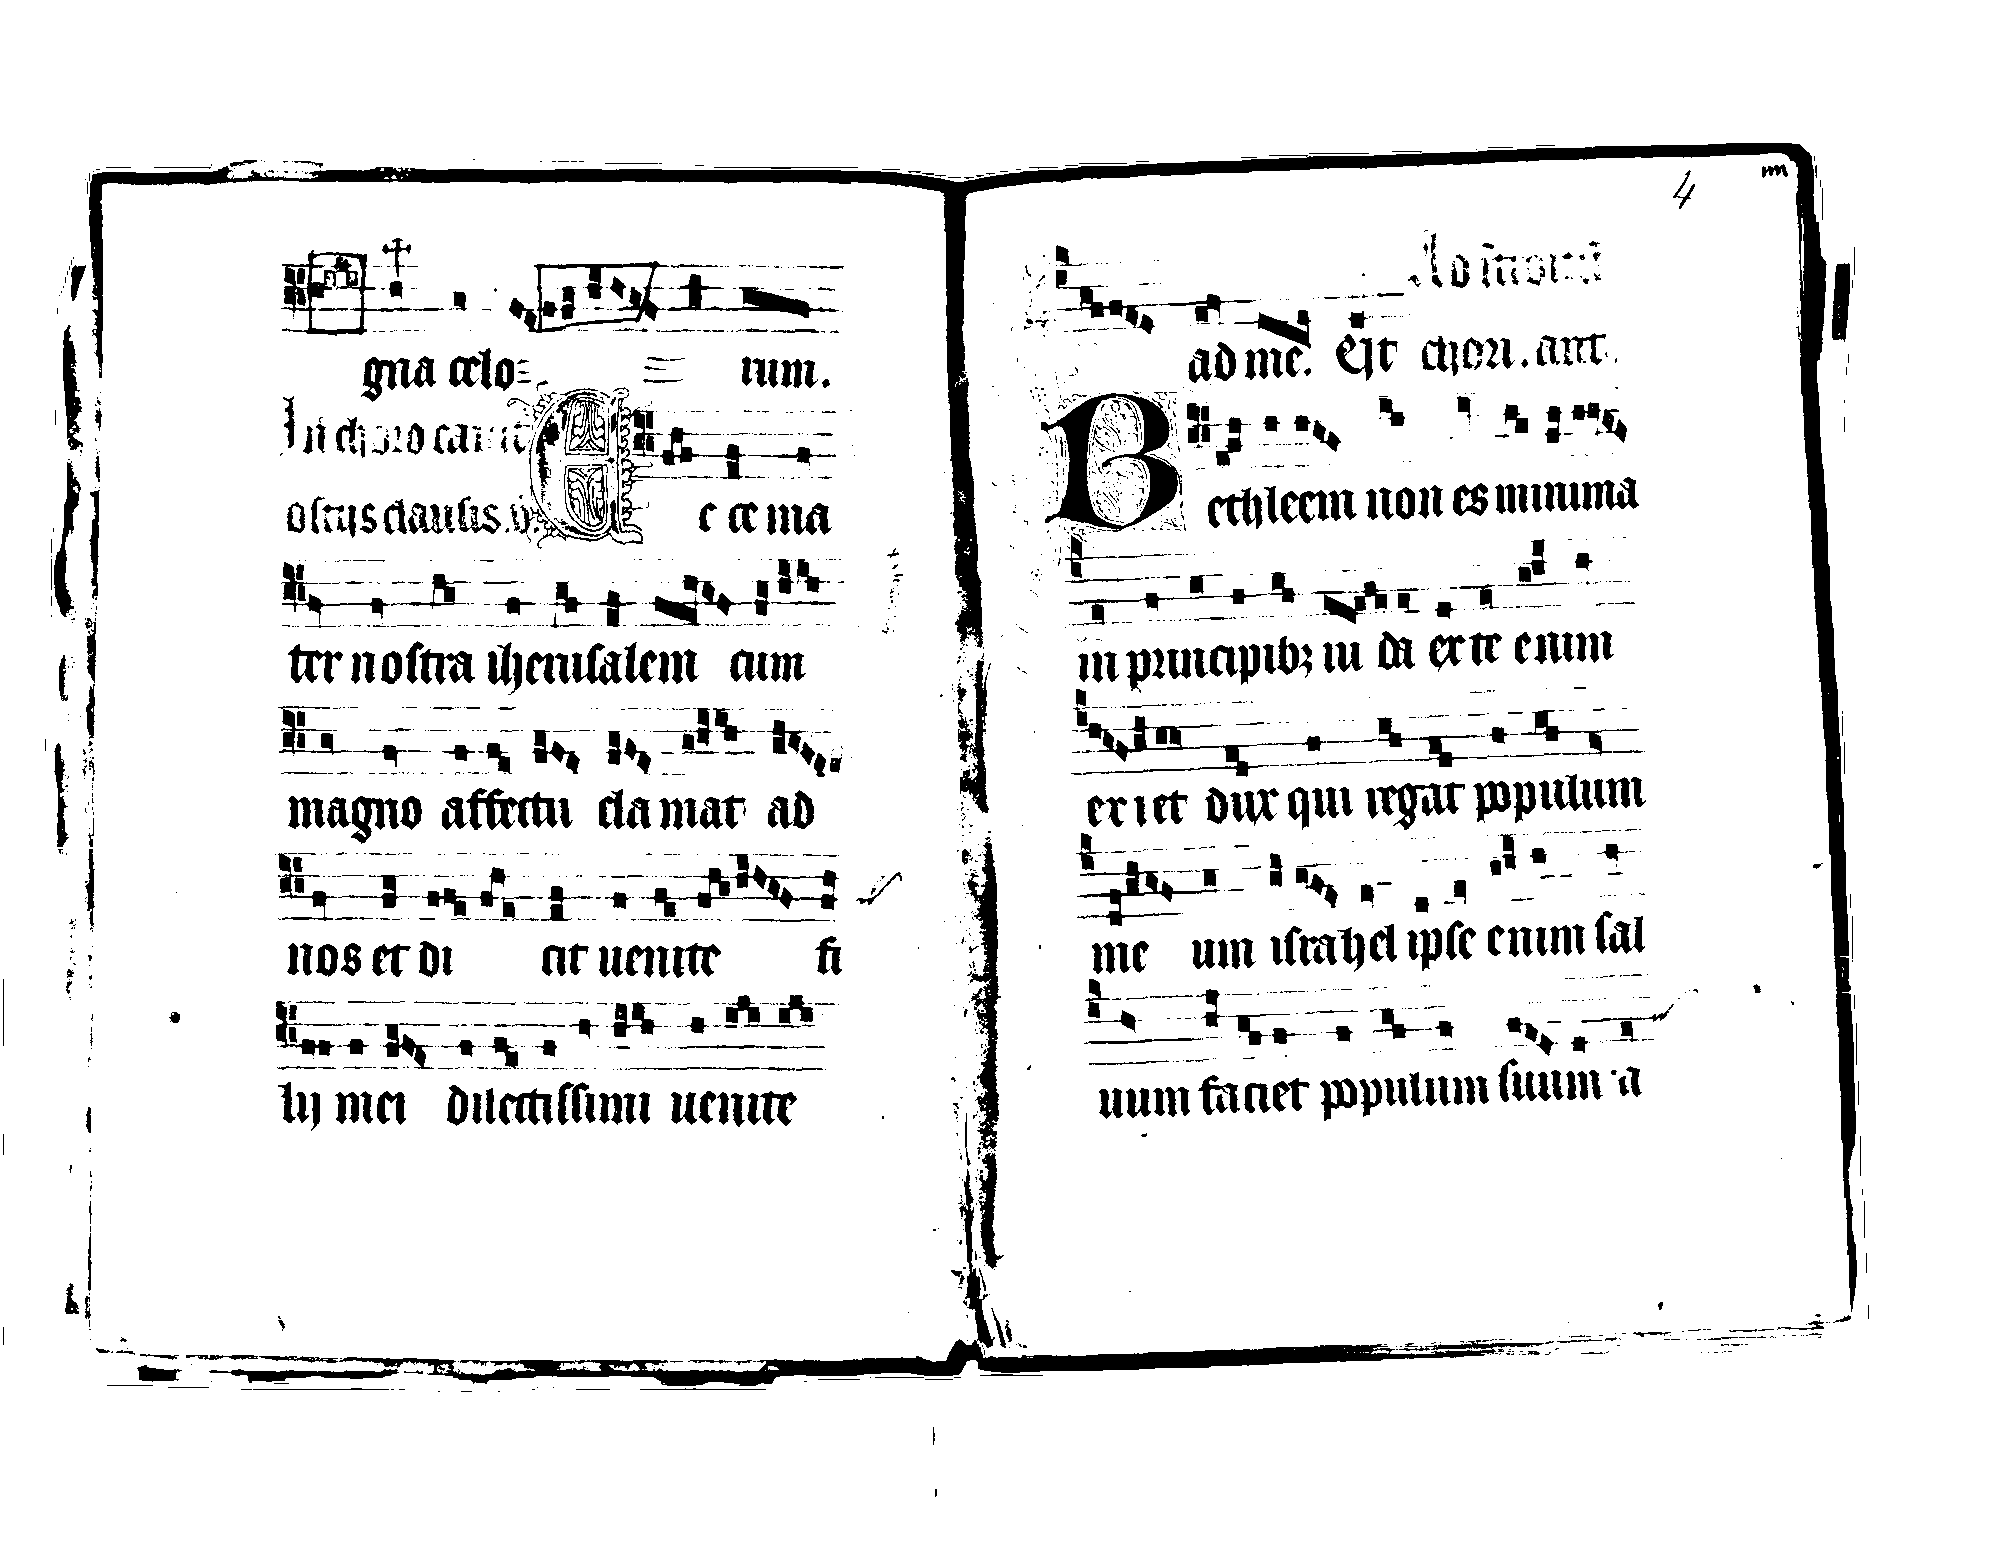 gna celo rum.
In choro cant
ostijs clausis. v̄ E c ce ma
ter nostra iherusalem cum
magno affectu clamat ad
nos et di cit uenite fi
lij mei dilectissimi uenite
4
Ad
ad me. Est chori. ant.
Bethleem non es minima
in principibꝫ iu da ex te enim
exiet dux qui regat populum
me um israhel ipse enim sal
uum faciet populum suum a